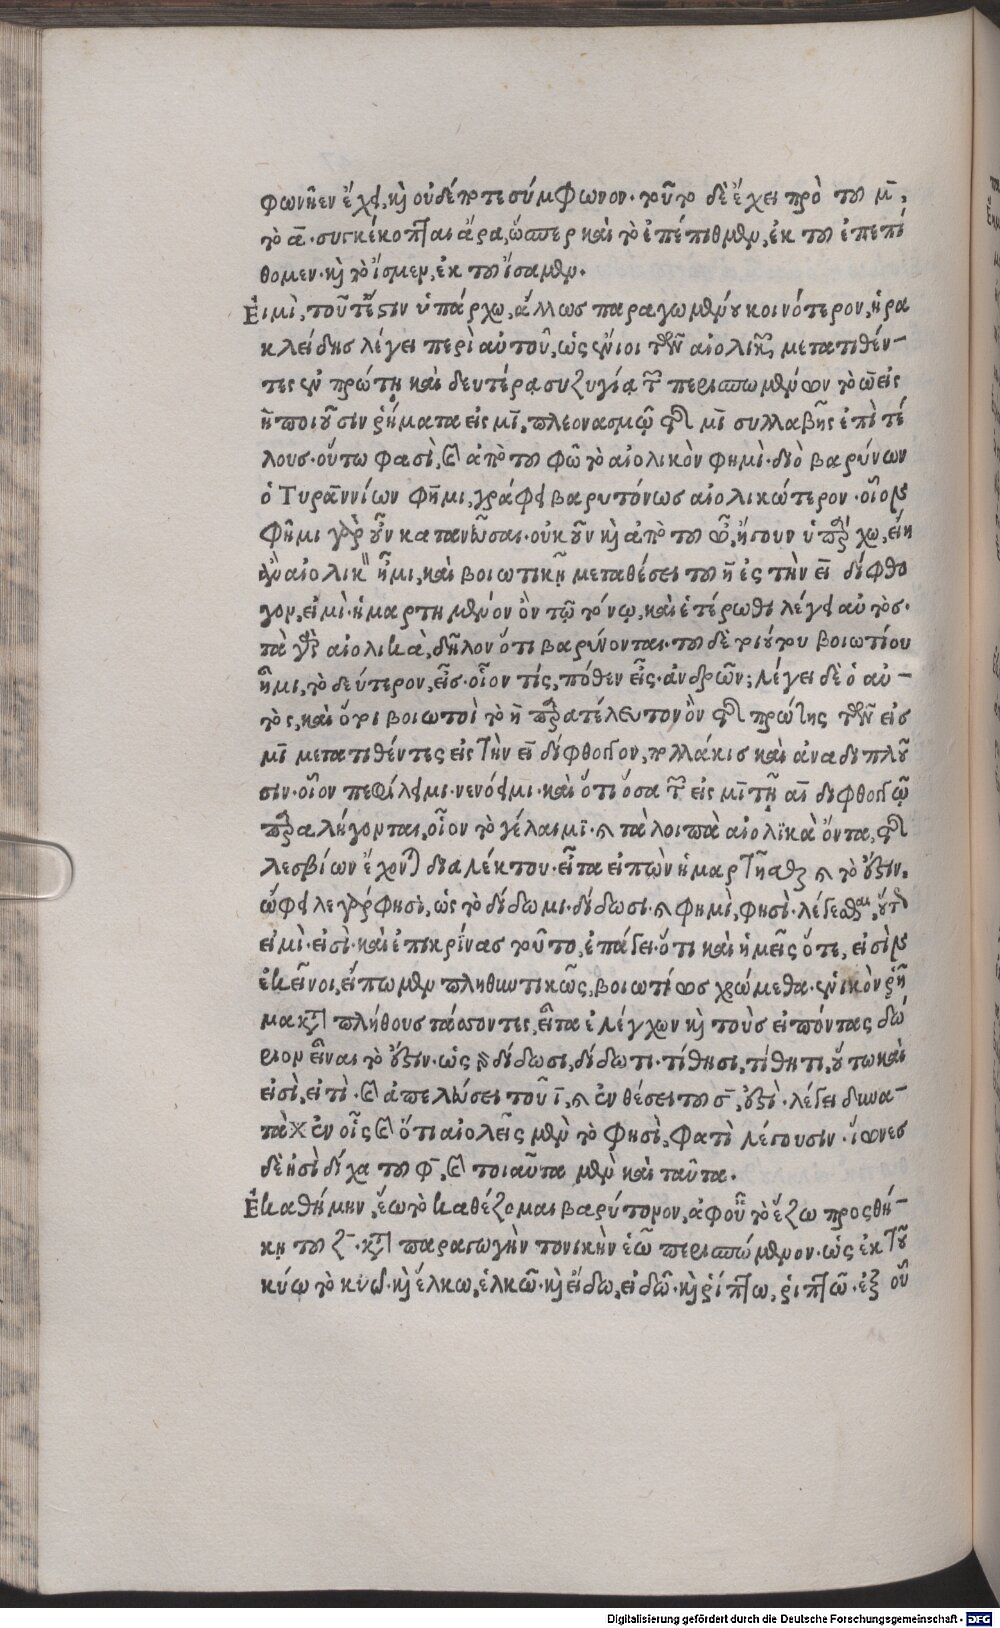 φωνῆεν ἔχει, καὶ οὐδέποτε σύμφωνον. τοῦτο δὲ ἔχει πρὸ τοῦ μ̄,
τὸ ᾱ. συγκέκοπται ἄρα, ὥσπερ καὶ τὸ ἐπέπιθμεν, ἐκ τοῦ ἐπεπί
θομεν. καὶ τὸ ἴσμεν, ἐκ τοῦ ἴσαμεν.
Εἰμὶ, τοῦτ' ἔστιν ὑπάρχω, ἄλλως παραγωμένου κοινότερον, ἡρα
κλείδης λέγει περὶ αὐτοῦ, ὡς ἔνιοι τῶν αἰολικῶν μετατιθέν-
τες ἐν πρώτῃ καὶ δευτέρᾳ συζυγίᾳ τῶν περισπωμένων τὸ ω̄ εἰς
η̄ ποιοῦσιν ῥήματα εἰς μῑ, πλεονασμῷ τῆς μῑ συλλαβῆς ἐπὶ τέ
λους. οὕτω φασὶ, καὶ ἀπὸ τοῦ φῶ τὸ αἰολικὸν φημὶ. διὸ βαρύνων
ὁ Τυραννίων φῆμι, γράφει βαρυτόνως αἰολικώτερον. οἷον
φῆμι γὰρ οὖν κατανεῦσαι. οὐκοῦν καὶ ἀπὸ τοῦ ω̄, ἤγουν ὑπάρχω, εἴη
ἂν αἰολικῶς ἦμι, καὶ βοιωτικῇ μεταθέσει τοῦ η̄ ἐς τὴν εῑ δίφθο
γον, εἰμὶ. ἡμαρτημένον ὂν τῷ τόνῳ, καὶ ἑτέρωθι λέγει αὐτὸς.
τὰ γὰρ αἰολικὰ, δῆλον ὅτι βαρύνονται. τοῦ δὲ τοιούτου βοιωτίου
ἦμι, τὸ δεύτερον, εἶς. οἷον τίς, πόθεν εἶς ἀνδρῶν; λέγει δὲ ὁ αὐ-
τὸς, καὶ ὅτι βοιωτοὶ τὸ η̄ παρατέλευτον ὂν τῆς πρώτης τῶν εἰς
μῑ μετατιθέντες εἰς τὴν εῑ δίφθογγον, πολλάκις καὶ ἀναδιπλοῦ
σιν. οἷον πεφίλειμι. νενόειμι. καὶ ὅτι ὅσα τῶν εἰς μῑ τῇ αῑ διφθόγγῳ
παραλήγονται, οἷον τὸ γέλαιμι. καὶ τὰ λοιπὰ αἰολικὰ ὄντα, τῆς
λεσβίων ἔχονται διαλέκτου. εἶτα εἰπὼν ἡμαρτῆσθαι καὶ τὸ οὐσιν,
ὤφειλε γὰρ φησὶ, ὡς τὸ δίδωμι. δίδωσι. καὶ φημὶ, φησὶ. λέγεσθαι, οὕτω
εἰμὶ. εἰσὶ. καὶ ἐπικρίνας τοῦτο, ἐπάγει. ὅτι καὶ ἡμεῖς ὅτε, εἰσὶν
ἐκεῖνοι, εἴπωμεν πληθυντικῶς, βοιωτίως χρώμεθα. ἑνικὸν ῥῆ
μα κατὰ πλήθους τάσσοντες, εἶτα ἐλέγχων καὶ τοὺς εἰπόντας δώ
ριον εἶναι τὸ οὐσιν. ὡς δίδωσι, δίδωτι. τίθησι, τίθητι, οὕτω καὶ
εἰσὶ, εἰτὶ. καὶ ἀπελεύσει τοῦ ῑ, καὶ ἐνθέσει τοῦ σ̄, λέγει δυνα-
τὰ ἐν οἷς καὶ ὅτι αἰολεῖς μὲν τὸ φησὶ, φατὶ λέγουσιν. ἴωνες
δὲ ἠσὶ δίχα τοῦ φ̄. καὶ τοιαῦτα μὲν καὶ ταῦτα.
Ἐκαθήμην, ἕω τὸ καθέζομαι βαρύτονον, ἀφ' οὗ τὸ ἕζω προσθή-
κῃ τοῦ ζ̄. κατὰ παραγωγὴν τονικὴν ἑῶ περισπώμενον. ὡς ἐκ τοῦ
κύω τὸ κυῶ. καὶ ἕλκω, ἑλκῶ. καὶ εἴδω, εἰδῶ. καὶ ῥίπτω, ῥιπτῶ. ἐξ οὗ
Digitalisierung gefördert durch die Deutsche Forschungsgemeinschaft - DFG